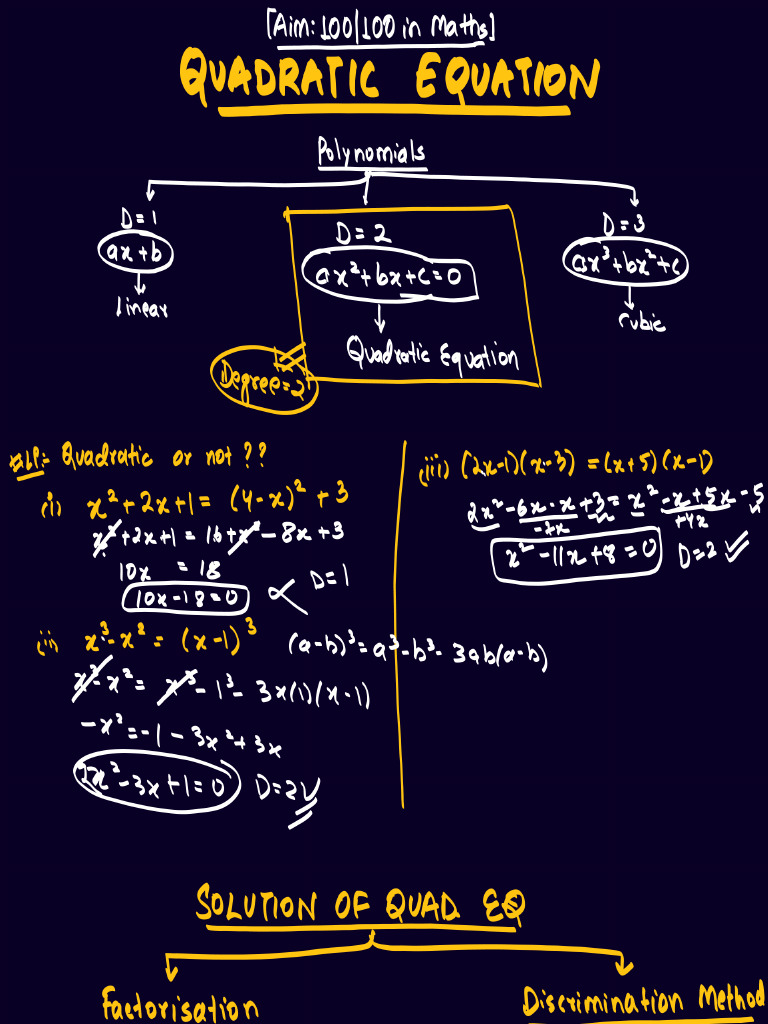 [Aim: 100/100 in Maths]
QUADRATIC EQUATION
Polynomials
D=1
ax+b
linear
D=2
ax²+bx+c=0
Quadratic Equation
Degree=2
D=3
ax³+bx²+c
cubic
Quadratic or not ??
(i) x²+2x+1 = (4-x)²+3
x²+2x+1 = 16+x²-8x+3
10x = 18
10x-18=0
D=1
(ii) x³-x² = (x-1)³
(a-b)³=a³-b³-3ab(a-b)
x³-x² = x³-1³-3x(1)(x-1)
-x²=-1-3x²+3x
2x²-3x+1=0 D=2
(iii) (2x-1)(x-3) = (x+5)(x-1)
2x²-6x-x+3= x²-x+5x-5
-7x +4x
x²-11x+8=0 D=2
SOLUTION OF QUAD EQ
Factorisation
Discrimination Method